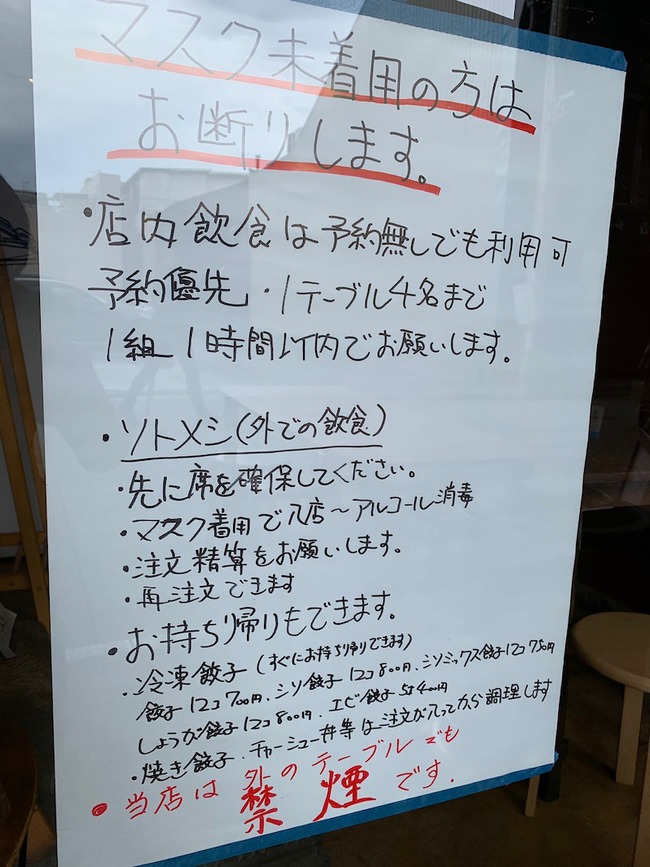 マスク未着用の方は
お断りします。
・店内飲食は予約無しでも利用可
予約優先・1テーブル4名まで
1組1時間以内でお願いします。
・ソトメシ(外での飲食)
・先に席を確保してください。
・マスク着用で入店〜アルコール消毒
・注文精算をお願いします。
・再注文できます
・お持ち帰りもできます。
・冷凍餃子(すぐにお持ち帰りできます)
餃子12コ700円、シソ餃子12コ800円、シソミックス餃子12コ750円
しょうが餃子12コ800円、エビ餃子5コ400円
・焼き餃子、チャーシュー丼等は注文が入ってから調理します
・当店は外のテーブルでも
禁煙です.